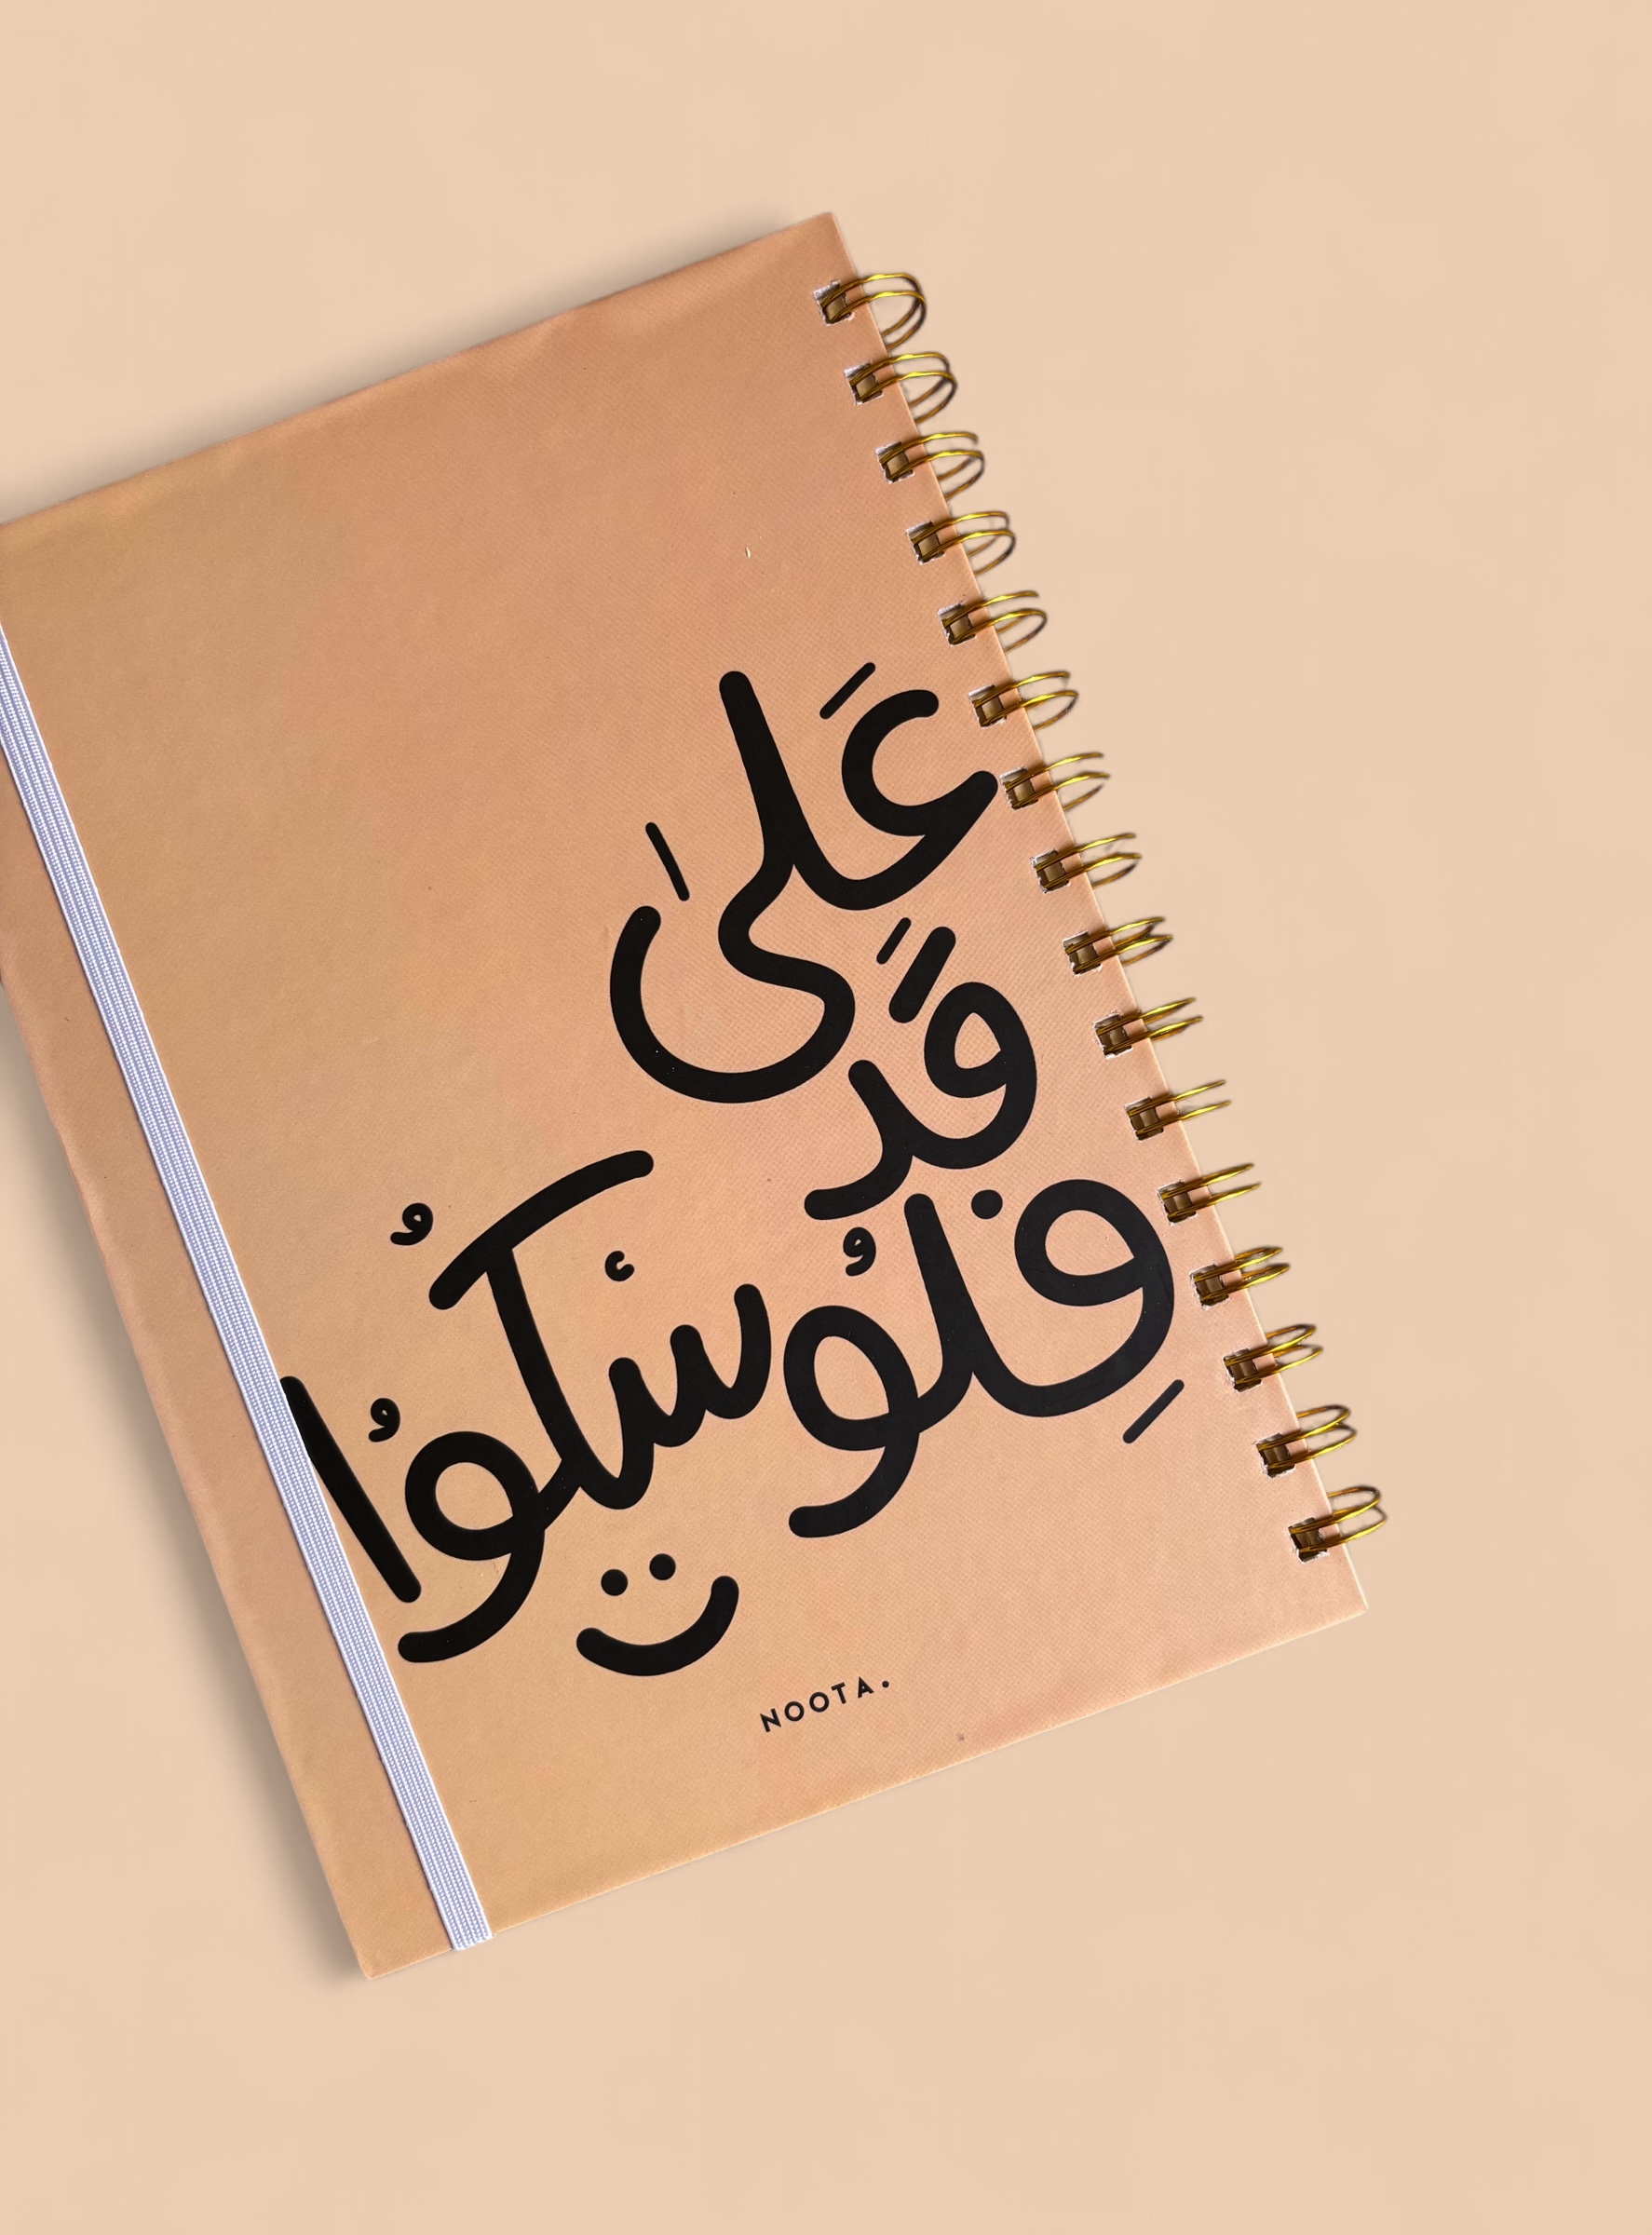 عَلىٰ
قَد
فِلُوسْكُوُا
NOOTA.